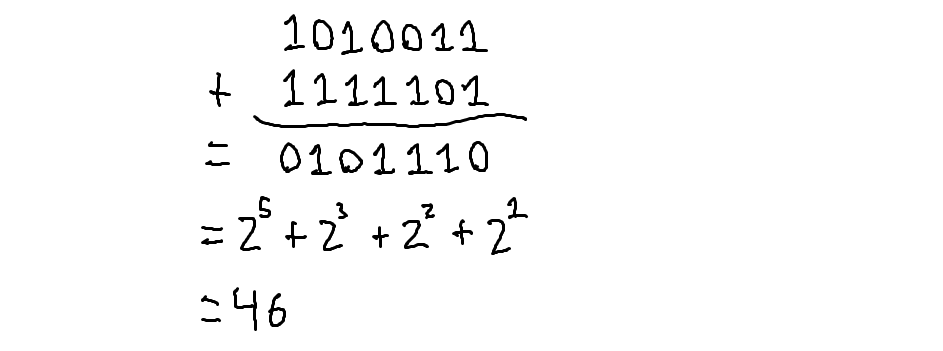 1010011
+ 1111101
= 0101110
= 2⁵ + 2³ + 2² + 2¹
= 46